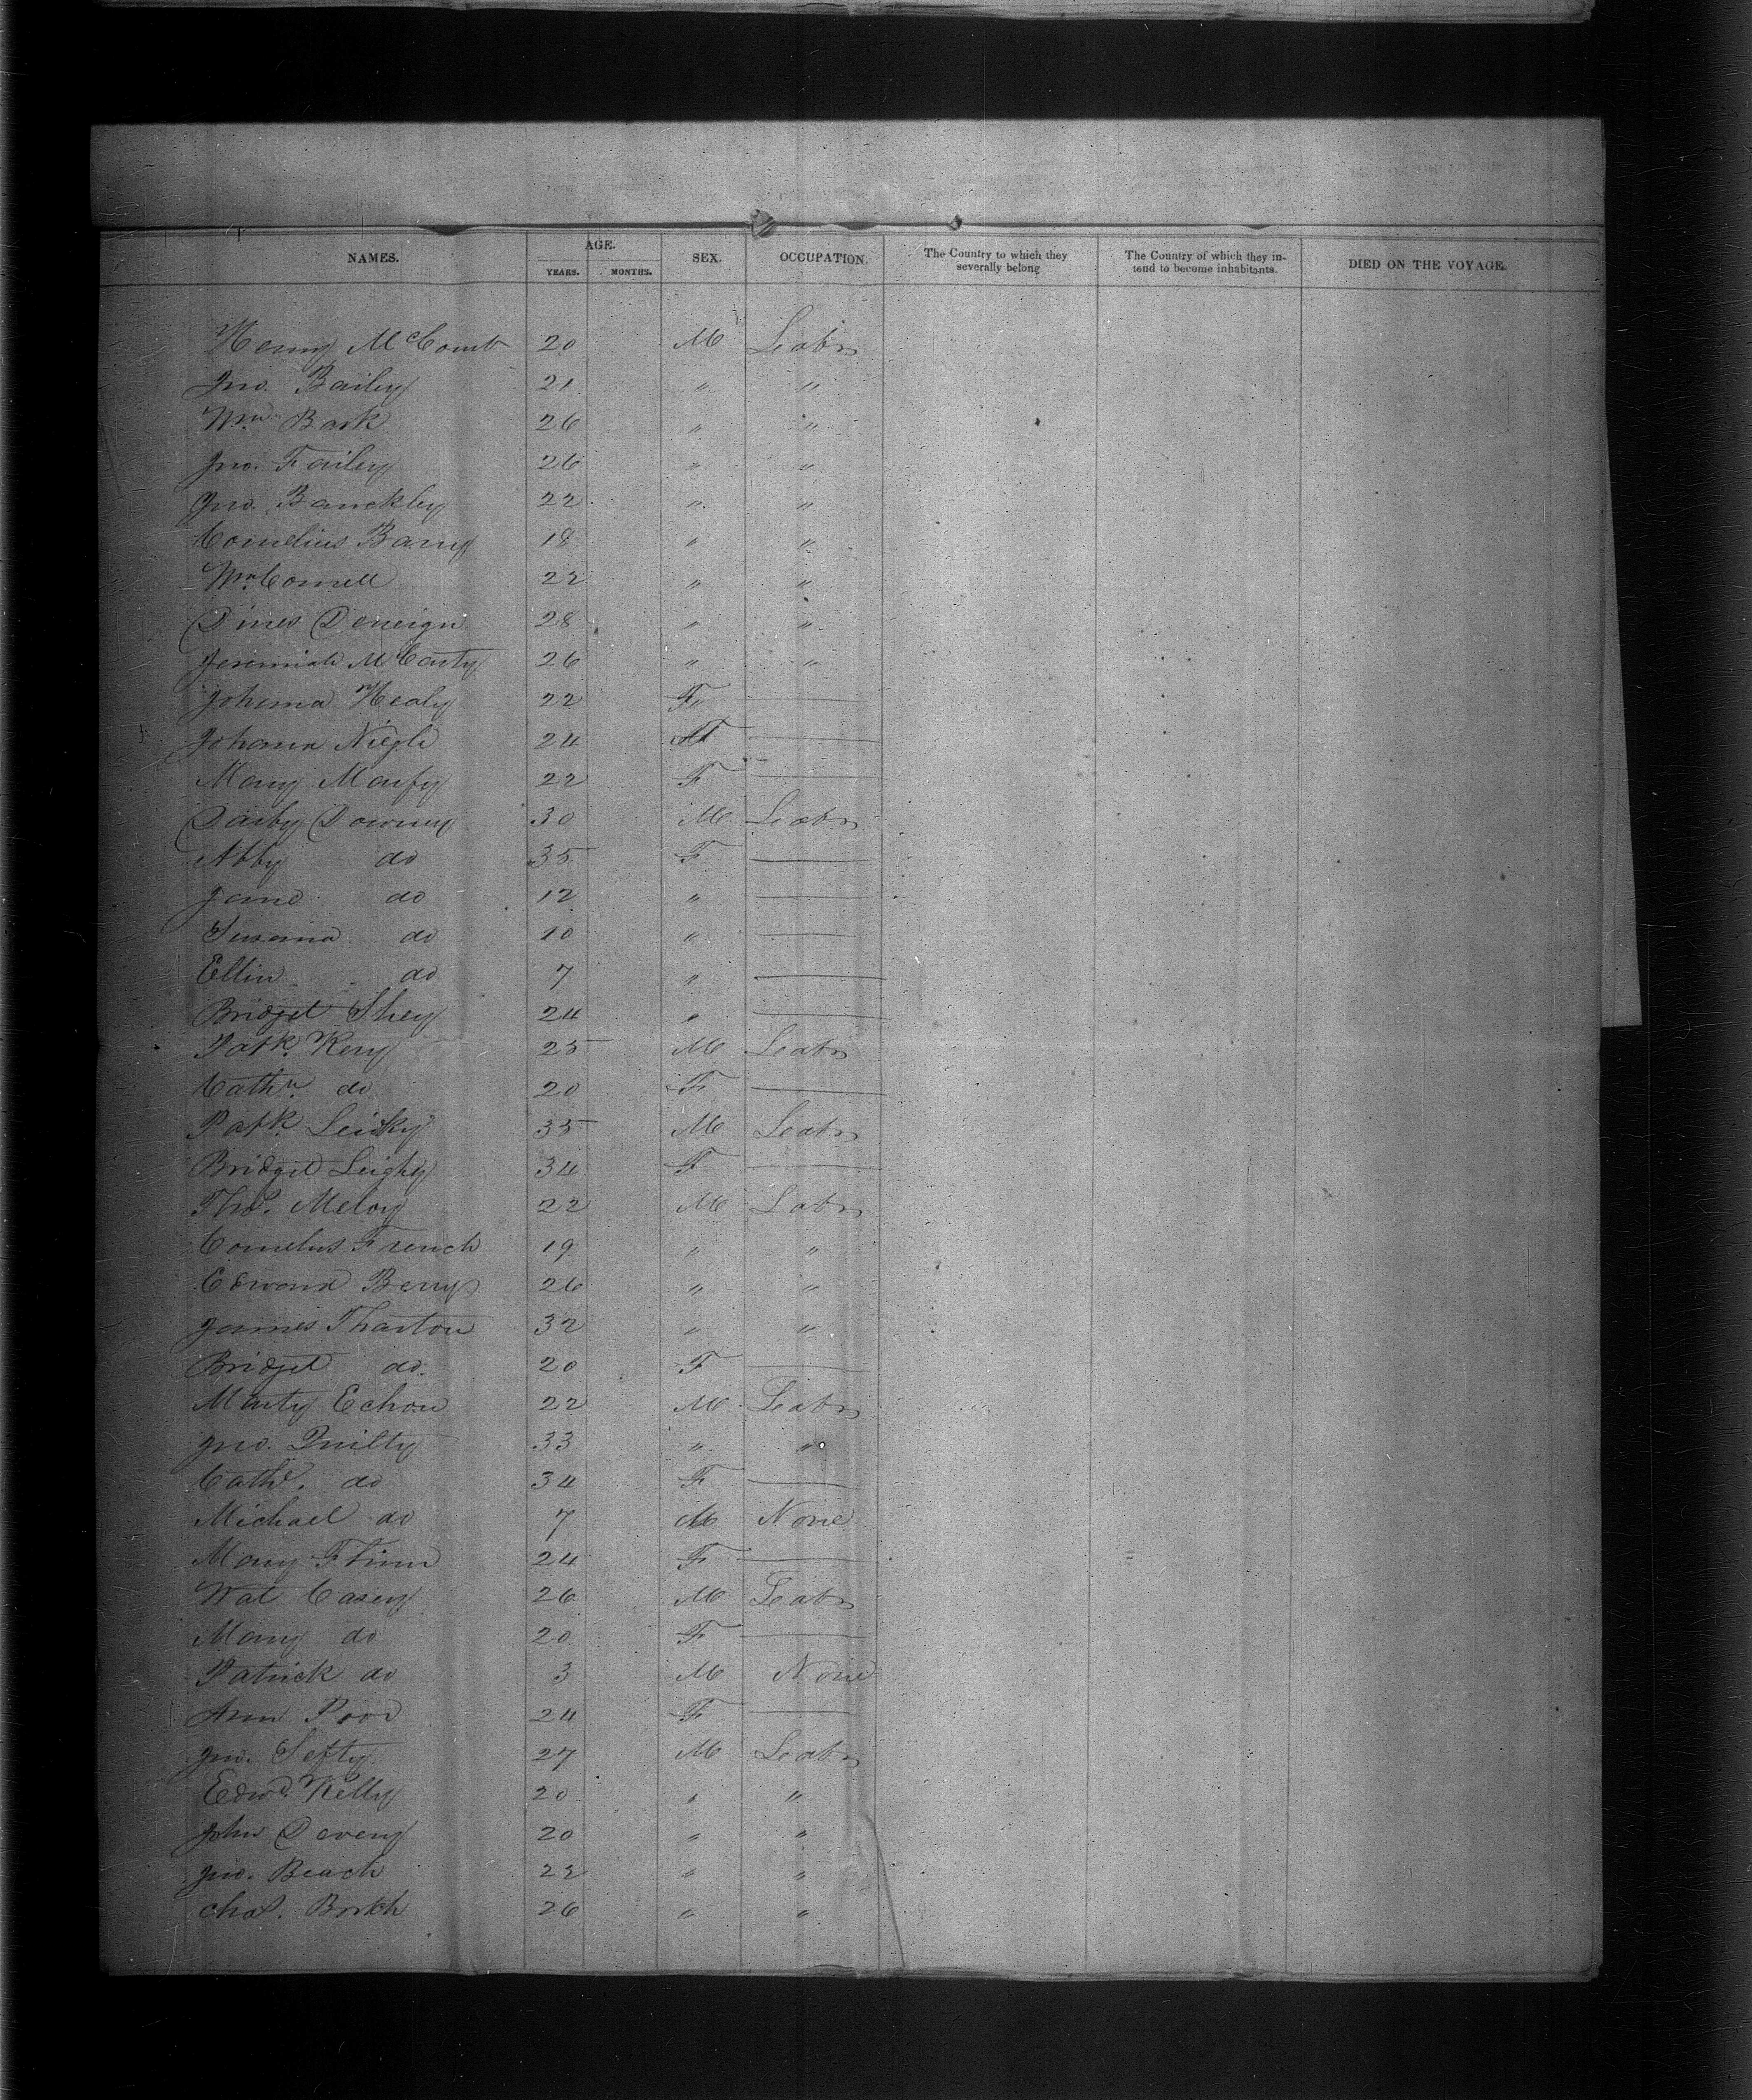 NAMES. AGE. YEARS. MONTHS. SEX. OCCUPATION. The Country to which they severally belong The Country of which they intend to become inhabitants. DIED ON THE VOYAGE.
Henry McComb 20 M Labr
Jno. Bailey 21 " "
Wm Bark 26 " "
Jno. Failey 26 " "
Jno. Banckley 22 " "
Cornelius Barry 18 " "
Wm Connell 22 " "
Dines Deneign 28 " "
Jeremiah McCarty 26 " "
Johanna Healy 22 F"
Johana Niegle 24 F
Mary Maufy 22 F
Darby Downey 30 M Labr
Abby do 35 F
Jane do 12 "
Susanna do 10 "
Ellin do 7 "
Bridget Shey 24 "
Patk. Kery 25 M Labr
Cathn. do 20 F
Patk. Leicky 35 M Labr
Bridget Leighy 34 F
Thos. Meloy 22 M Labr
Cornelus French 19 " "
Edward Berry 26 " "
James Tharton 32 " "
Bridget do. 20 F
Marty Echon 22 M Labr
Jno. Quilty 33 " "
Cathe. do 34 F
Michael do 7 M None
Mary Flinn 24 F
Wat Casey 26 M Labr
Mary do 20 F
Patrick do 3 M None
Ann Poor 24 F
Jno. Sefty 27 M Labr
Edwd. Kelly 20 " "
John Deveny 20 " "
Jno. Beach 22 " "
Chas. Borkh 26 " "